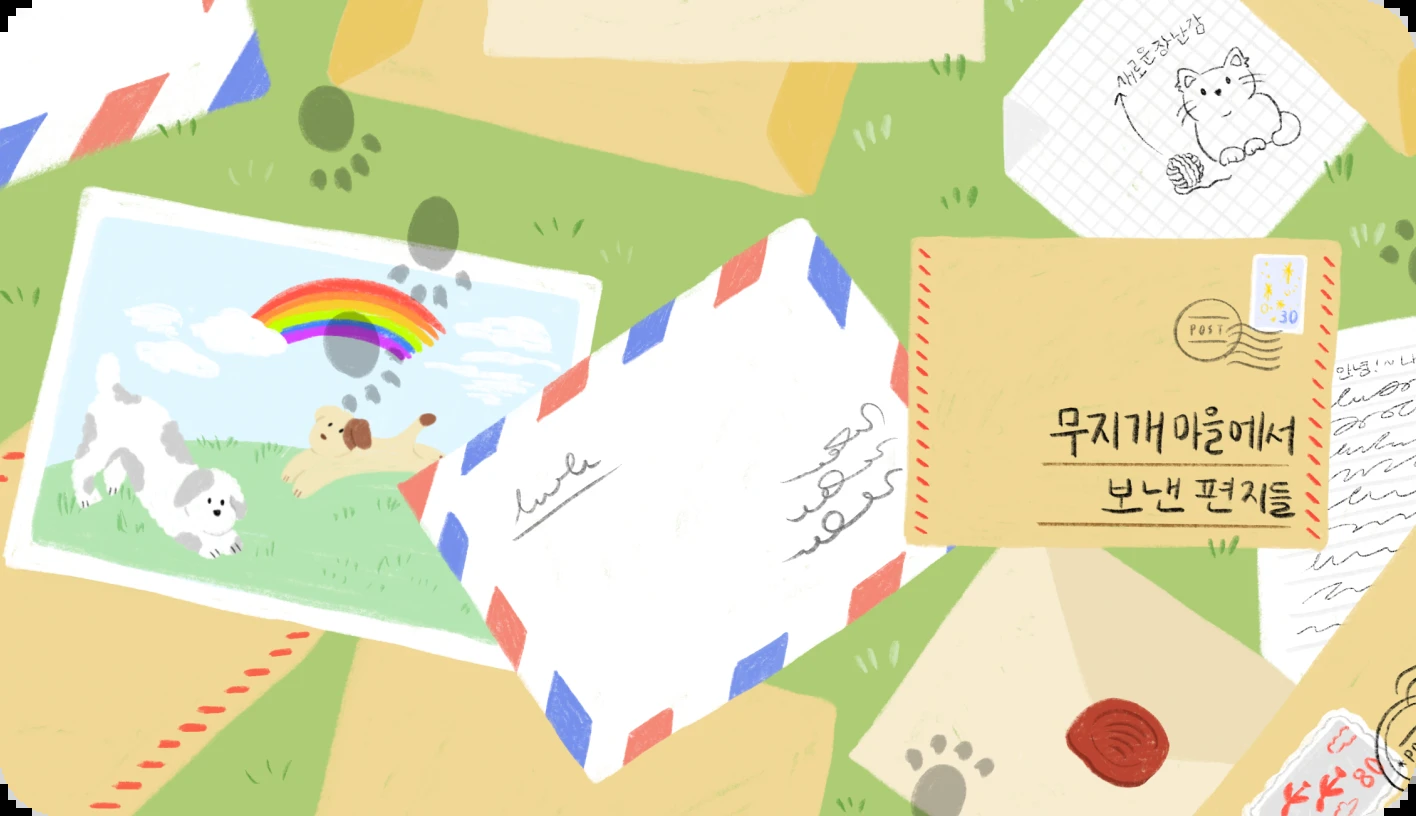 새로운 장난감
30
POST
무지개 마을에서
보낸 편지들
안녕!~나
80